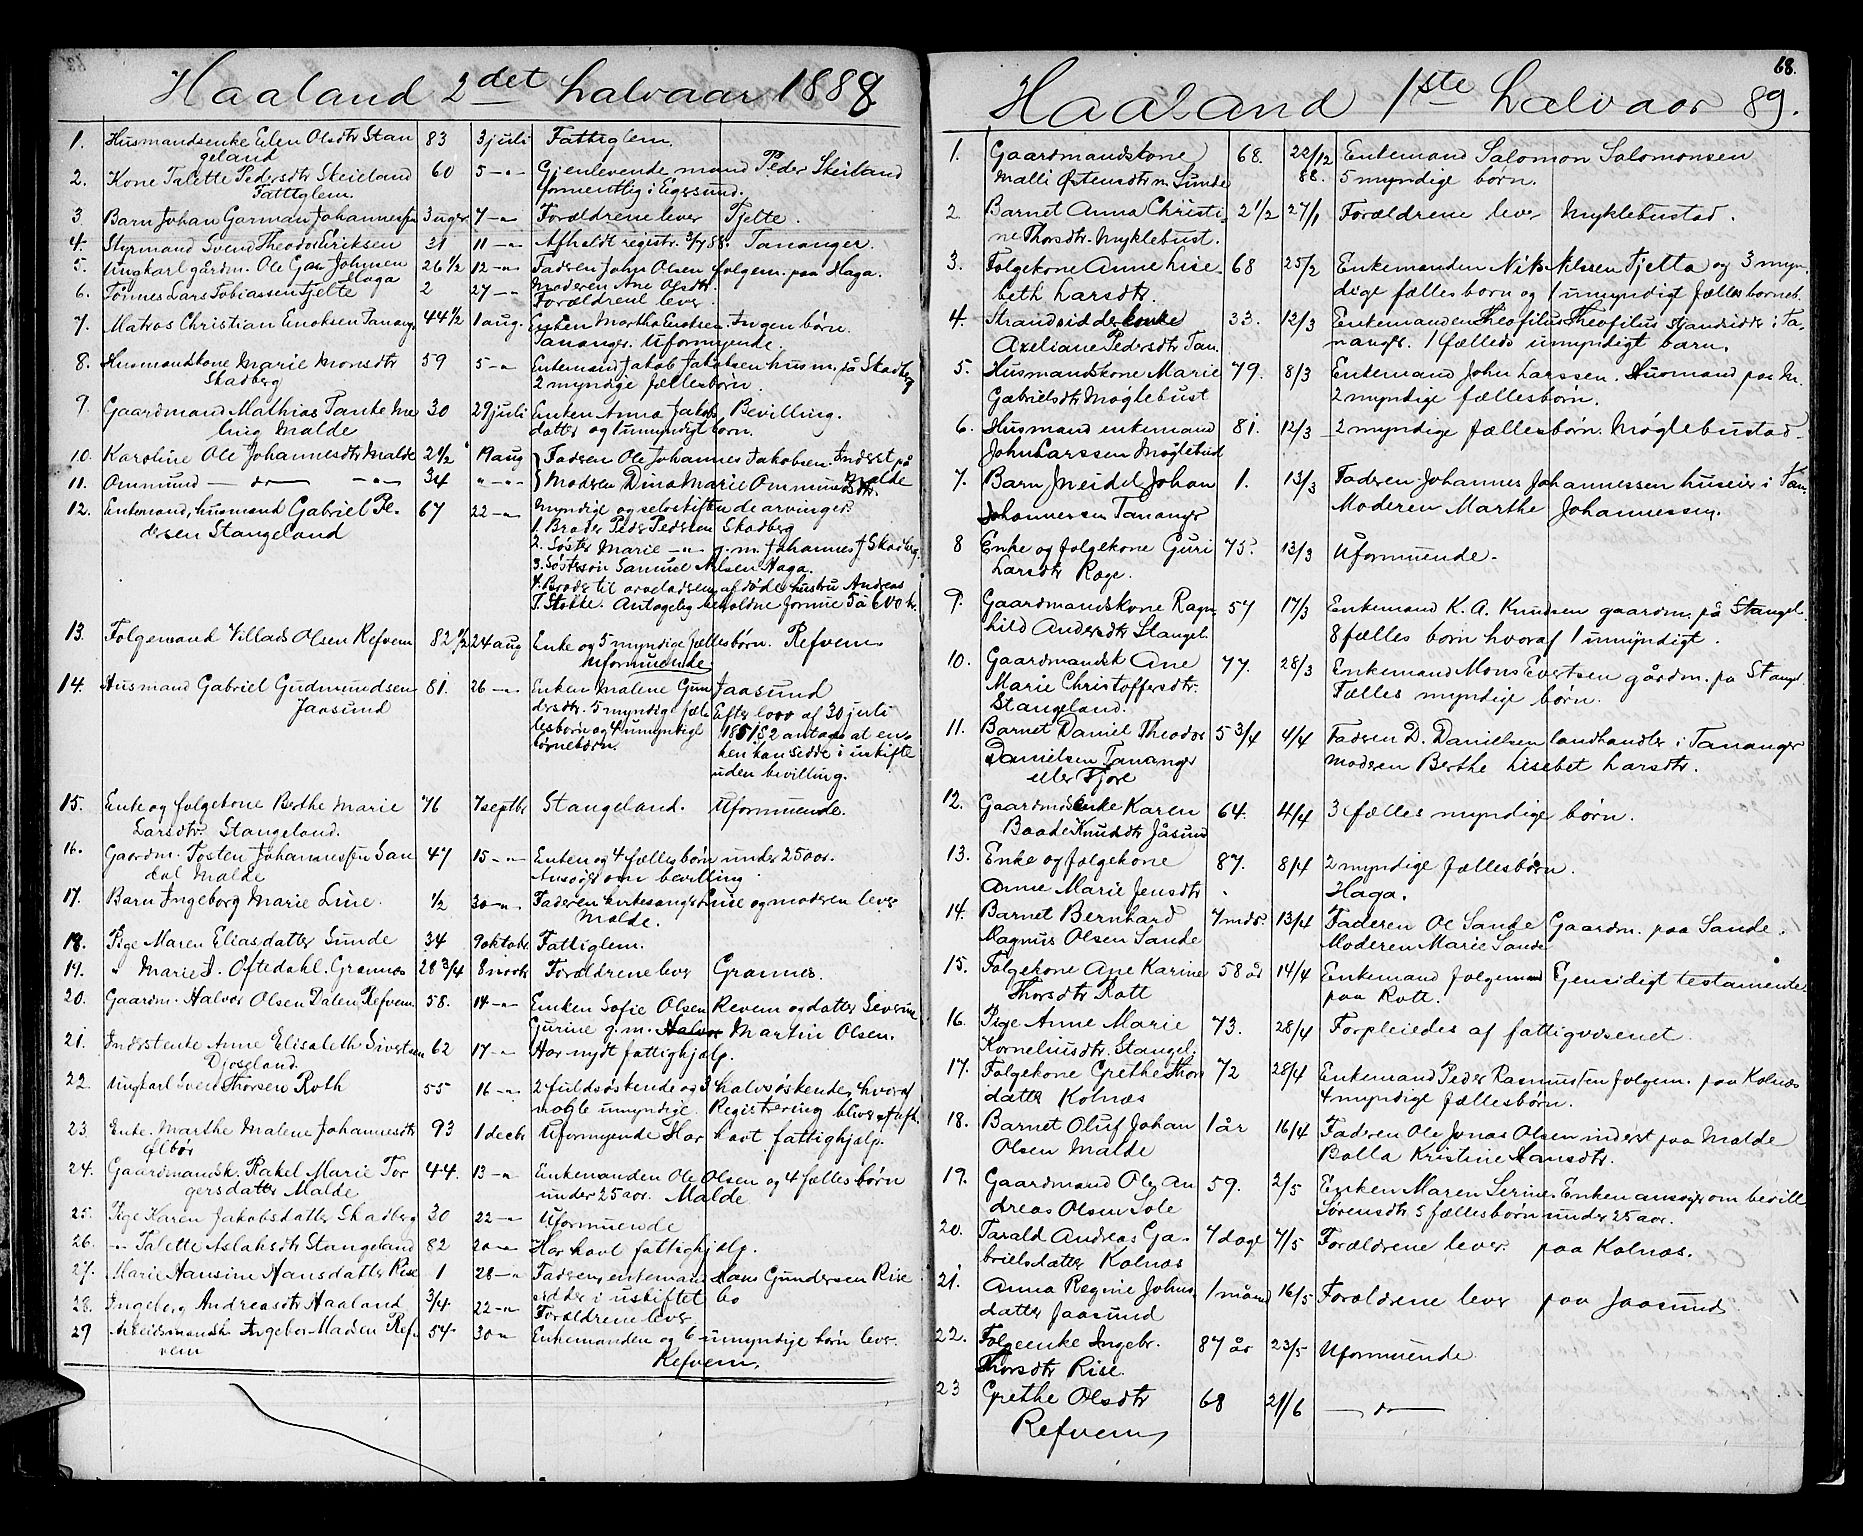 Haaland 2det halvaar 1888
1. Husmandsenke Elen Olsdtr Stan 83 3 juli Fattiglem.
geland
2. Kone Talette Pedersdtr Skeiland 60 5 -"- Gjenlevende mand Peder Skeiland
Fattiglem. formentlig i Egersund.
3 Barn Johan Garman Johannessen 3 uger 7 -"- Forældrene lever Tjelte.
4. Styrmand Svend Theodor Eriksen 21 11 -"- Afholdt registr. 3/7 88. Tananger.
5. Ungkarl gårdm. Ole Gan Johnsen 26 1/2 12 -"- Faderen John Olsen folgem. paa Haga.
Haga Moderen Ane Olsdtr.
6. Tønnes Lars Tobiassen Tjelte 2 27 -"- Forældrene lever.
7. Matros Christian Enoksen Tanang. 44 1/2 1 aug. Enken Martha Enoksen. Ingen børn.
Tananger. Uformuende.
8. Husmandskone Marie Monsdtr 59 5 -"- Enkemand Jakob Jakobsen husm. på Skadberg
Skadberg 2 myndige fællesbørn.
9. Gaardmand Mathias Tanke Me 30 29 juli Enken Anna Jakobs Bevilling.
ling Malde datter og 1 umyndigt barn.
10. Karoline Ole Johannesdtr Malde 2 1/2 19 aug Faderen Ole Johannes Jakobsen. Inderst på
11. Ommund — do — -"- 34 " -"- Moderen Dina Marie Ommundsdtr. Malde
12. Enkemand, husmand Gabriel Pe- 67 22 -"- Myndige og selvskiftende arvinger.
dersen Stangeland 1. Broder Peder Pedersen Skadberg
2. Søster Marie -"- g.m. Johannes J Skadberg.
3. Søstersøn Samuel Nilsen Haga.
4. Broder til arveladeren af døde hustru Andreas
T. Stokke. Antagelig beholdne formue 5 à 600 kr.
13. Folgemand Villads Olsen Refvem 82 1/2 24 aug Enke og 5 myndige fællesbørn. Refvem
Uformuende
14. Husmand Gabriel Gudmundsen 81. 26 -"- Enken Malene Gun Jaasund
Jaasund dersdtr. 5 myndige fæl- Efter lov af 30 juli
lesbørn og 4 umyndige 1851 § 2 antages at en-
børnebørn. ken kan sidde i uskifte
uden bevilling.
15. Enke og folgekone Berthe Marie 76 7 septbr Stangeland. Uformuende.
Larsdtr. Stangeland.
16. Gaardm. Tosten Johannessen San 47 15 -"- Enken og 4 fælles børn under 25 aar.
dal Malde Ansøger om bevilling.
17. Barn Ingeborg Marie Line. 1/2 30 -"- Faderen kirkesanger Line og moderen lever
Malde.
18. Pige Maren Eliasdatter Sunde 34 9 oktobr Fattiglem.
19. " Marie J. Oftedahl. Grannes 28 3/4 8 novbr Forældrene lever Grannes.
20. Gaardm. Halvor Olsen Dalen Refvem 58. 14 -"- Enken Sofie Olsen Revem og datter Severine
Gurine g.m. Halvor Martin Olsen.
21. Inderstenke Anne Elisabeth Sivertsen 62 17 -"- Har nydt fattighjælp.
Djoseland.
22 Ungkarl Svend Thorsen Roth 55 16 -"- 2 fuldsøskende og 3 halvsøskende, hvoraf
nogle umyndige. Registrering bliver afh.
23. Enke. Marthe Malene Johannesdtr 93 1 decbr Uformuende Har havt fattighjælp.
Ølbør
24. Gaardmandsk. Rakel Marie Tor 44. 13 -"- Enkemanden Ole Olsen og 4 fælles børn
gersdatter Malde under 25 aar. Malde
25. Pige Karen Jakobsdatter Skadberg 30 22 -"- Uformuende
26. -"- Talette Aslaksdtr Stangeland 82 20 -"- Har havt fattighjælp.
27. Marie Hansine Hansdatter Rise 1 28 -"- Faderen, enkemand Hans Gundersen Rise
sidder i uskiftet bo
28. Ingeborg Andreasdtr Haaland 3/4. 22 -"- Forældrene lever
29 Arbeidsmandsk. Ingebor Madsen Ref- 54. 30 " Enkemanden og 6 umyndige børn lever.
vem Refvem.
68.
Haaland 1ste halvaar 89.
1. Gaardmandskone 68. 22/12 Enkemand Salomon Salomonsen
Malli Østensdtr n. Sunde 88. 5 myndige børn.
2. Barnet Anna Christi- 2 1/2 27/1 Forældrene lever Myklebustad.
ne Thorsdtr. Myklebust.
3. Folgekone Anne Lise- 68 25/2 Enkemanden Nils Nilssen Tjelta og 3 myn-
beth Larsdtr. dige fællesbørn og 1 umyndigt fælles barneb.
4. Strandsidderenke 33. 12/3 Enkemanden Theofilus Theofilus strandsidr i Ta-
Axeliane Pedersdtr Tan. nangr. 1 fælleds umyndigt barn.
5. Husmandskone Marie 79. 8/3 Enkemand John Larssen. Husmand paa M.
Gabrielsdtr Møglebust 2 myndige fællesbørn.
6. Husmand enkemand 81. 12/3 2 myndige fællesbørn. Møglebustad
John Larssen Møglebust
7. Barn Meidel Johan 1. 13/3 Faderen Johannes Johannessen huseier i Tan.
Johannessen Tananger Moderen Marthe Johannessen.
8 Enke og folgekone Guri 75. 13/3 Uformuende.
Larsdtr Roge.
9. Gaardmandskone Ragn 57 17/3 Enkemand K. A. Knudsen gaardm. på Stangel.
hild Andersdtr Stangel. 8 fælles børn hvoraf 1 umyndigt.
10. Gaardmandsk Ane 77. 28/3 Enkemand Mons Evertsen gårdm. pa Stangel.
Marie Christoffersdtr. Fælles myndige børn.
Stangeland.
11. Barnet Daniel Theodor 5 3/4 4/4 Faderen D. Danielsen landhandler i Tananger
Danielsen Tananger Moderen Berthe Lisebet Larsdtr.
eller Fjore
12. Gaardmdsenke Karen 64. 4/4 3 fælles myndige børn.
Baade Knudsdtr Jåsund
13. Enke og folgekone 87. 8/4 2 myndige fællesbørn.
Anne Marie Jensdtr Haga.
14. Barnet Bernhard 7 mdr. 13/4 Faderen Ol Sande Gaardm. paa Sande.
Magnus Olsen Sande Moderen Marie Sande
15. Folgekone Ane Karine 58 år 14/4 Enkemand folgemand Gensidigt testamente
Thorsdtr Rott paa Rott.
16. Pige Anne Marie 73. 28/4 Forpleiedes af fattigvæsenet.
Korneliusdtr. Stangel.
17. Folgekone Grethe Thors 72 28/4 Enkemand Peder Rasmussen folgem. paa Kolnæs
datter Kolnæs 4 myndige fællesbørn.
18. Barnet Oluf Johan 1 år 16/4 Faderen Ole Jonas Olsen inderst paa Malde
Olsen Malde Bolla Kristine Hansdtr.
19. Gaardmand Ole An 59. 2/5 Enken Maren Serine. Enken ansøger om bevill
dreas Olsen Sole Sørensdtr 5 fællesbørn under 25 aar.
20. Tarald Andreas Ga- 7 dage 7/5 Forældrene lever. paa Kolnæs.
brielsdatter Kolnæs
21. Anna Regine Johns 1 måned 16/5 Forældrene lever paa Jaasund
datter Jaasund
22. Folgeenke Ingebr. 87 år 23/5 Uformuende
Thorsdtr Rise.
23 Grethe Olsdtr 68 21/6 — do —
Refvem